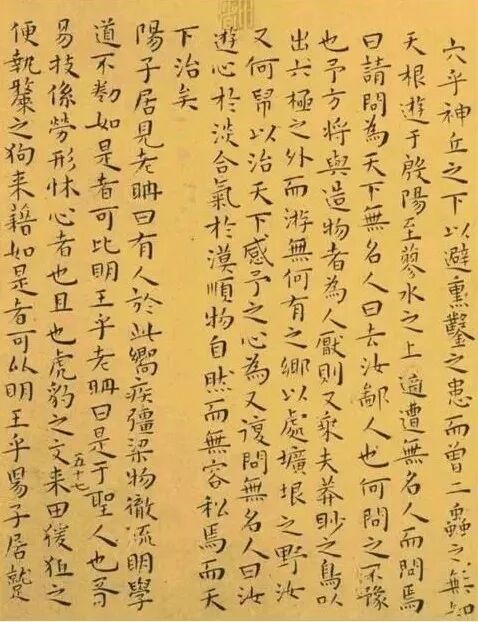 穴乎神丘之下以避熏鑿之患而曾二蟲之無知
天根遊于殷陽至蓼水之上適遭無名人而問焉
曰請問為天下無名人曰去汝鄙人也何問之不豫
也予方将與造物者為人厭則又乘夫莽眇之鳥以
出六極之外而游無何有之鄉以處壙垠之野汝
又何帠以治天下感予之心為又復問無名人曰汝
遊心於淡合氣於漠順物自然而無容私焉而天
下治矣
陽子居見老聃曰有人於此嚮疾彊梁物徹疏明學
道不勌如是者可比明王乎老聃曰是于聖人也胥
易技係勞形怵心者也且也虎豹之文来田猨狙之
五十七
便執斄之狗来藉如是者可以明王乎陽子居蹵